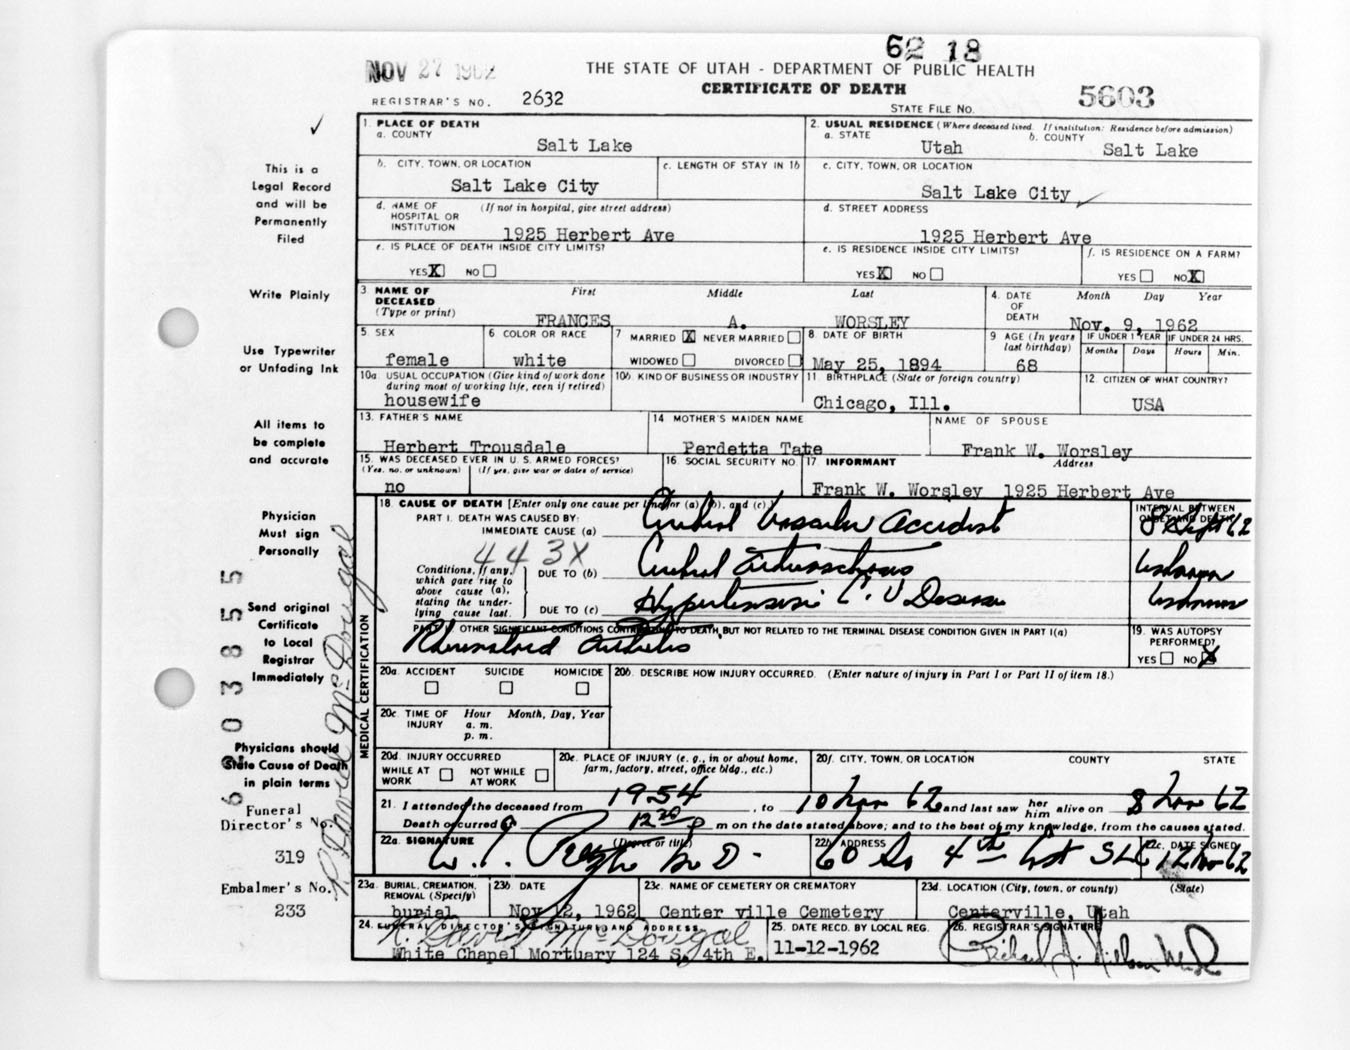 62 18
NOV 27 1962
THE STATE OF UTAH - DEPARTMENT OF PUBLIC HEALTH
CERTIFICATE OF DEATH
REGISTRAR'S NO. 2632
STATE FILE NO. 5603
1. PLACE OF DEATH
a. COUNTY
Salt Lake
2. USUAL RESIDENCE (Where deceased lived. If institution: Residence before admission)
a. STATE
Utah
b. COUNTY
Salt Lake
b. CITY, TOWN, OR LOCATION
Salt Lake City
c. LENGTH OF STAY IN 1b
c. CITY, TOWN, OR LOCATION
Salt Lake City
d. NAME OF HOSPITAL OR INSTITUTION
(If not in hospital, give street address)
1925 Herbert Ave
d. STREET ADDRESS
1925 Herbert Ave
e. IS PLACE OF DEATH INSIDE CITY LIMITS?
YES X NO
e. IS RESIDENCE INSIDE CITY LIMITS?
YES X NO
f. IS RESIDENCE ON A FARM?
YES NO X
3. NAME OF DECEASED (Type or print)
First Middle Last
FRANCES A. WORSLEY
4. DATE OF DEATH
Month Day Year
Nov. 9, 1962
5. SEX
female
6 COLOR OR RACE
white
7 MARRIED X NEVER MARRIED
WIDOWED DIVORCED
8 DATE OF BIRTH
May 25, 1894
9 AGE (In years last birthday)
68
IF UNDER 1 YEAR
Months Days
IF UNDER 24 HRS.
Hours Min.
10a. USUAL OCCUPATION (Give kind of work done during most of working life, even if retired)
housewife
10b. KIND OF BUSINESS OR INDUSTRY
11. BIRTHPLACE (State or foreign country)
Chicago, Ill.
12. CITIZEN OF WHAT COUNTRY?
USA
13. FATHER'S NAME
Herbert Trousdale
14 MOTHER'S MAIDEN NAME
Perdetta Tate
NAME OF SPOUSE
Frank W. Worsley
15. WAS DECEASED EVER IN U.S. ARMED FORCES?
(Yes, no, or unknown) (If yes, give war or dates of service)
no
16. SOCIAL SECURITY NO.
17. INFORMANT
Address
Frank W. Worsley 1925 Herbert Ave
MEDICAL CERTIFICATION
18. CAUSE OF DEATH [Enter only one cause per line for (a) (b), and (c).]
INTERVAL BETWEEN ONSET AND DEATH
PART I. DEATH WAS CAUSED BY:
IMMEDIATE CAUSE (a)
Cerebral Vascular Accident
8 Sept 62
443X
Conditions, if any, which gave rise to above cause (a), stating the underlying cause last.
DUE TO (b)
Cerebral Arteriosclerosis
Unknown
DUE TO (c)
Hypertensive C. V Disease
Unknown
PART II. OTHER SIGNIFICANT CONDITIONS CONTRIBUTING TO DEATH BUT NOT RELATED TO THE TERMINAL DISEASE CONDITION GIVEN IN PART I(a)
Rheumatoid Arthritis
19. WAS AUTOPSY PERFORMED?
YES NO X
20a. ACCIDENT SUICIDE HOMICIDE
20b. DESCRIBE HOW INJURY OCCURRED. (Enter nature of injury in Part I or Part II of item 18.)
20c. TIME OF INJURY
Hour Month, Day, Year
a. m.
p. m.
20d. INJURY OCCURRED
WHILE AT WORK NOT WHILE AT WORK
20e. PLACE OF INJURY (e. g., in or about home, farm, factory, street, office bldg., etc.)
20f. CITY, TOWN, OR LOCATION COUNTY STATE
21. I attended the deceased from 1954, to 10 Nov 62 and last saw her him alive on 8 Nov 62
Death occurred at 12 20 P m on the date stated above; and to the best of my knowledge, from the causes stated.
22a. SIGNATURE (Degree or title)
M D.
22b. ADDRESS
60 So 4th East SLC
22c. DATE SIGNED
12 Nov 62
23a. BURIAL, CREMATION, REMOVAL (Specify)
burial
23b. DATE
Nov 12, 1962
23c. NAME OF CEMETERY OR CREMATORY
Center ville Cemetery
23d. LOCATION (City, town, or county) (State)
Centerville, Utah
24. FUNERAL DIRECTOR'S SIGNATURE AND ADDRESS
R. David McDougal
White Chapel Mortuary 124 S. 4th E.
25. DATE RECD. BY LOCAL REG.
11-12-1962
26. REGISTRAR'S SIGNATURE
This is a
Legal Record
and will be
Permanently
Filed
Write Plainly
Use Typewriter
or Unfading Ink
All items to
be complete
and accurate
Physician
Must sign
Personally
Send original
Certificate
to Local
Registrar
Immediately
Physicians should
State Cause of Death
in plain terms
Funeral
Director's No.
319
Embalmer's No.
233
R David McDougal